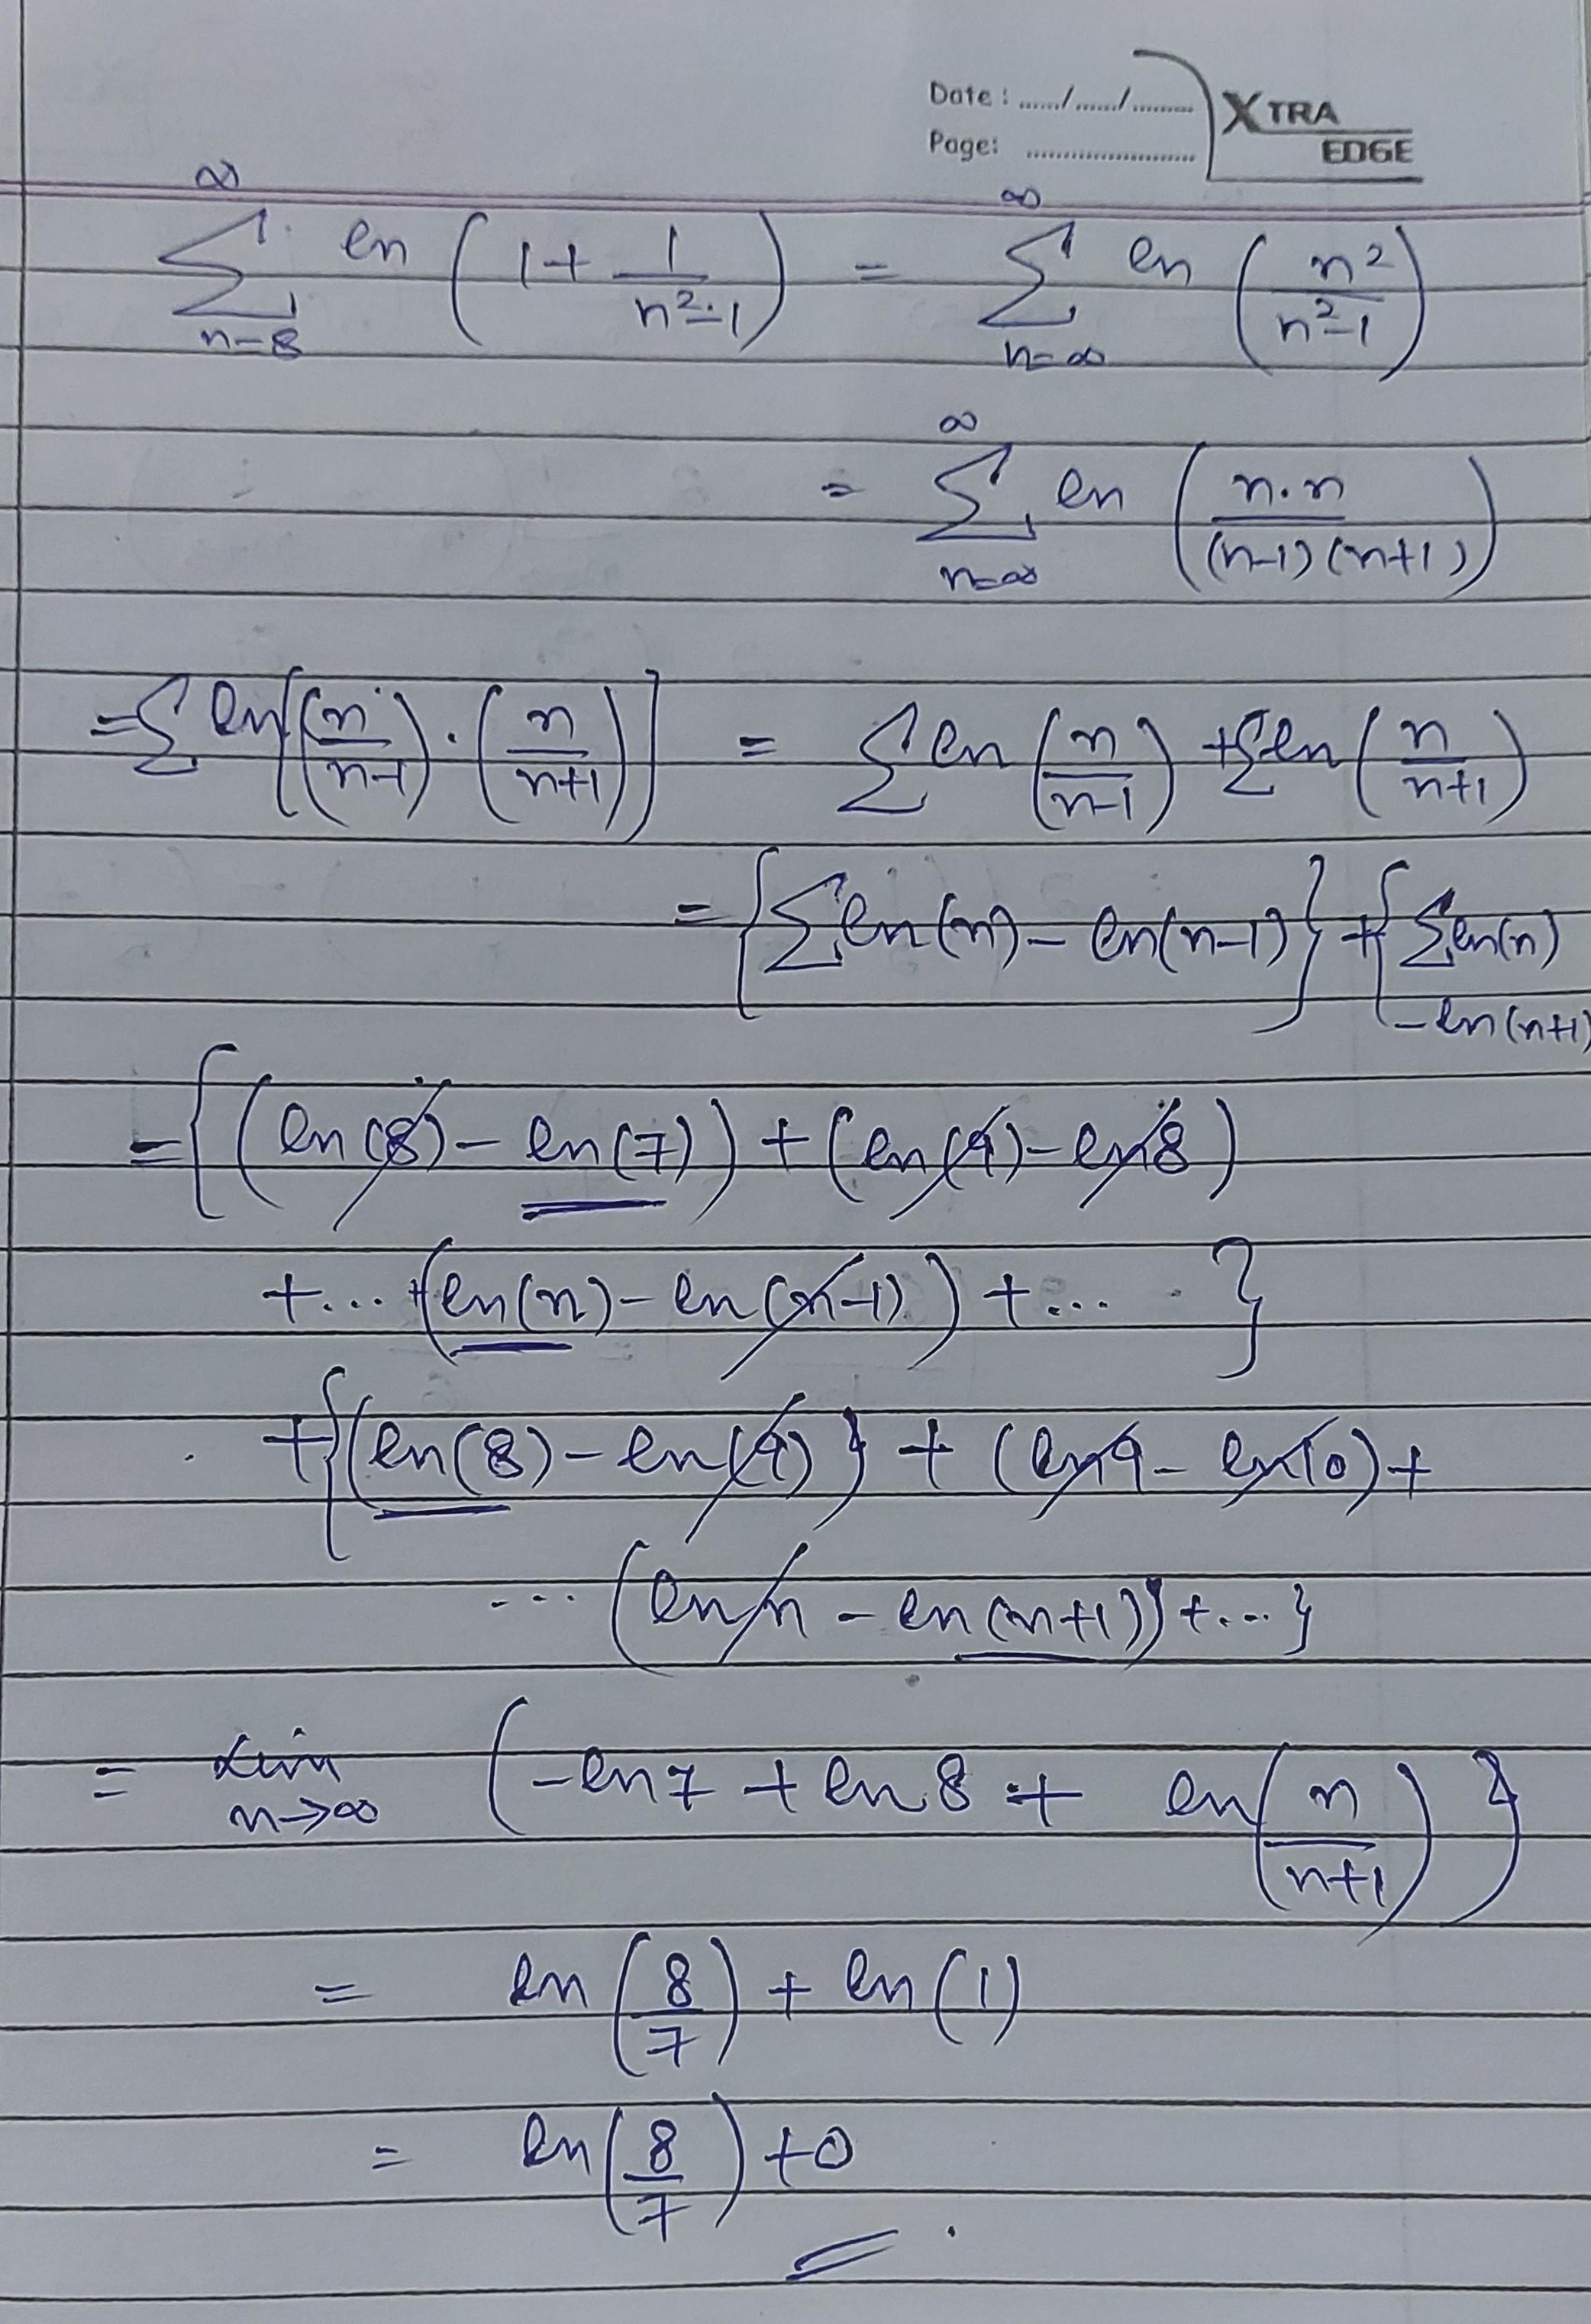 Date : ....../....../.........
Page: ........................
XTRA EDGE
∞ ∑ n=8 ln (1 + 1/(n²-1)) = ∞ ∑ n=∞ ln (n²/(n²-1))
= ∞ ∑ n=∞ ln (n·n/((n-1)(n+1)))
= ∑ ln[(n/(n-1)) · (n/(n+1))] = ∑ ln (n/(n-1)) + ∑ ln (n/(n+1))
= {∑ ln(n) - ln(n-1)} + {∑ ln(n)
- ln(n+1)
= {(ln(8) - ln(7)) + (ln(9) - ln 8)
+ ... + (ln(n) - ln(n-1)) + ... }
+ {(ln(8) - ln(9)) + (ln 9 - ln 10) +
... (ln n - ln(n+1)) + ... }
= Lim n→∞ (-ln 7 + ln 8 + ln(n/(n+1)))
= ln (8/7) + ln (1)
= ln (8/7) + 0